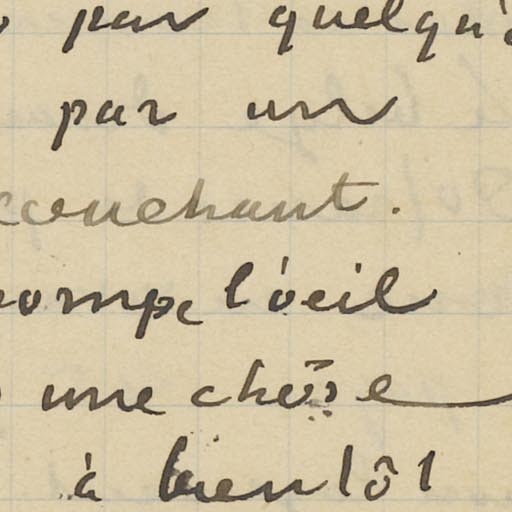 par quelqu'
par un
couchant.
ompe l'oeil
une chose
à bientôt